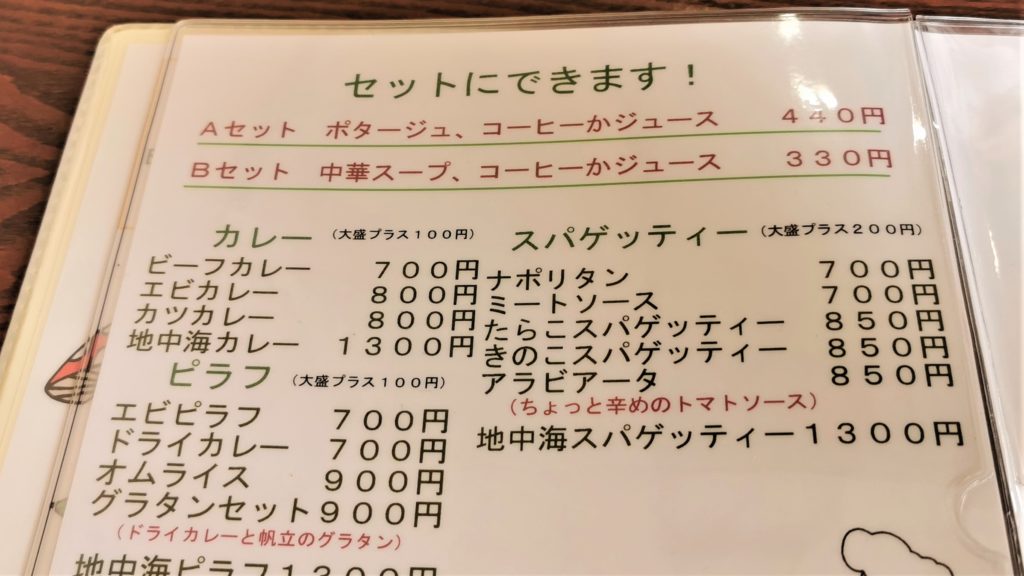 セットにできます！
Aセット　ポタージュ、コーヒーかジュース　４４０円
Bセット　中華スープ、コーヒーかジュース　３３０円
カレー（大盛プラス１００円）
ビーフカレー　７００円
エビカレー　８００円
カツカレー　８００円
地中海カレー　１３００円
ピラフ（大盛プラス１００円）
エビピラフ　７００円
ドライカレー　７００円
オムライス　９００円
グラタンセット９００円
（ドライカレーと帆立のグラタン）
地中海ピラフ１３００円
スパゲッティー（大盛プラス２００円）
ナポリタン　７００円
ミートソース　７００円
たらこスパゲッティー　８５０円
きのこスパゲッティー　８５０円
アラビアータ　８５０円
（ちょっと辛めのトマトソース）
地中海スパゲッティー１３００円